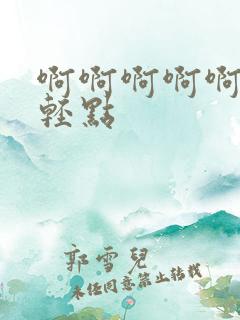 啊啊啊啊啊
輕點
郭雪兒
未經同意禁止轉載